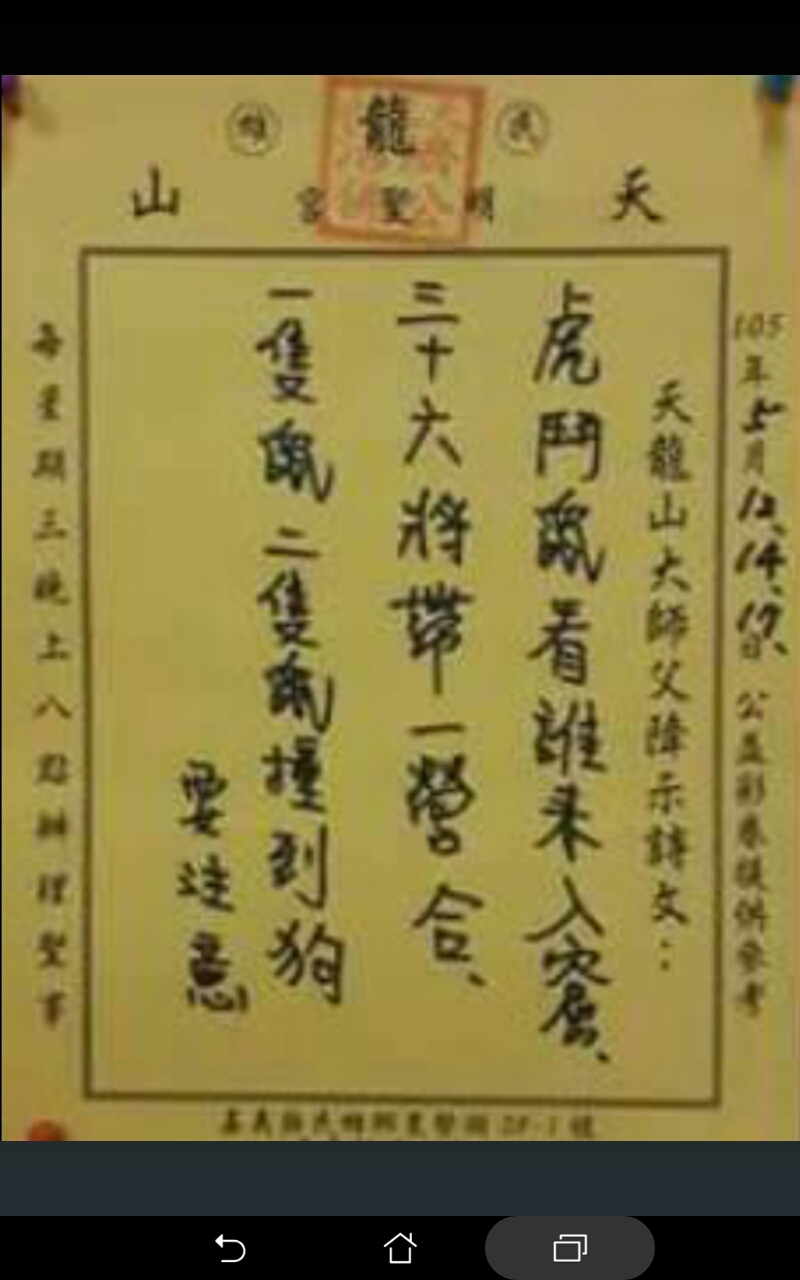 民 龍 雄
天 明聖宮 山
105年5月12、14、17日 公益彩券提供參考
天龍山大師父降示詩文：
虎鬥鼠看誰來入窟、
三十六將帶一營合、
一隻鼠二隻鼠撞到狗
要注意
每星期三晚上八點辦理聖事
嘉義縣民雄鄉